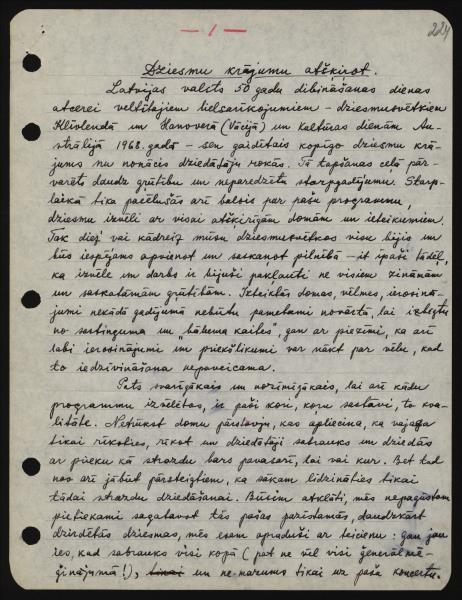 — 1 —
224
Dziesmu krājumu atšķirot.
Latvijas valsts 50 gadu dibināšanas dienas
atcerei veltītajiem lielsarīkojumiem – dziesmusvētkiem
Klīvlendā un Hanoverā (Vācijā) un kultūras dienām Au-
strālijā 1968. gadā – sen gaidītais kopīgo dziesmu krā-
jums nu nonācis dziedātāju rokās. Tā tapšanas ceļā pār-
varēts daudz grūtību un neparedzētu starpgadījumu. Starp-
laikā tika pacēlušās arī balsis par pašu programmu,
dziesmu izvēli ar visai atšķirīgām domām un ieteikumiem.
Tak diez vai kādreiz mūsu dziesmusvētkos visu bijis un
būs iespējams apvienot un saskaņot pilnībā – it īpaši tādēļ,
ka izvēle un darbs ir bijuši pakļauti ne visiem zināmām
un saskatāmām grūtībām. Izteiktās domas, vēlmes, ierosinā-
jumi nekādā gadījumā nebūtu pametami novārtā, lai izbēgtu
no sastinguma un "bākuma kaites", gan ar piezīmi, ka arī
labi ierosinājumi un priekšlikumi var nākt par vēlu, kad
to iedzīvināšana nepaveicama.
Pats svarīgākais un nozīmīgākais, lai arī kādu
programmu izvēlētos, ir paši kori, koru sastāvi, to kva-
litāte. Netrūkst domu paudēju, kas apliecina, ka vajaga
tikai rīkoties, rīkot un dziedātāji sabrauks un dziedās
ar prieku kā strazdu bars pavasarī, lai vai kur. Bet tad
nav arī jābūt pārsteigtiem, ka sākam līdzināties tikai
tādai strazdu dziedāšanai. Būsim atklāti, mēs nepagūstam
pietiekami sagatavot tās pašas pazīstamās, daudzkārt
dzirdētās dziesmas, mēs esam apraduši ar teicienu: gan jau
ies, kad sabrauks visi kopā (pat ne vēl visi ģenerālmē-
ģinājumā!), tikai un ne mazums tikai uz paša koncertu.